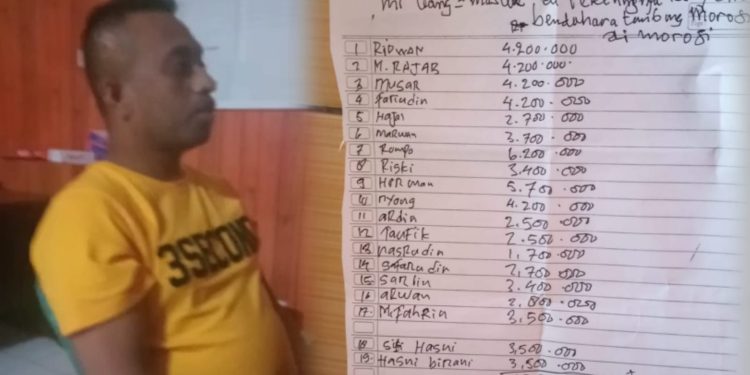 3SECOND
ini uang = masuk di rekeningnya
bendahara tambang Morosi
di morosi
1 RIDWAN 4.200.000
2 M. RAJAB 4.200.000.
3 MUSAR 4.200.000
4 fariudin 4.200.000
5 Hajar 2.700.000
6 maruan 3.700.000
7 Rompo 6.200.000
8 Riski 3.400.000
9 Herman 5.700.000
10 nyong 4.200.000
11 ardin 2.500.000
12 Taufik 2.500.000
13 nasrudin 1.700.000
14 safarudin 2.700.000
15. sarlin 3.400.000
16 arwan 2.800.000
17. M.fahrin 3.500.000
18 siti Hasni 3.500.000
19. Hasni birani 3.500.000